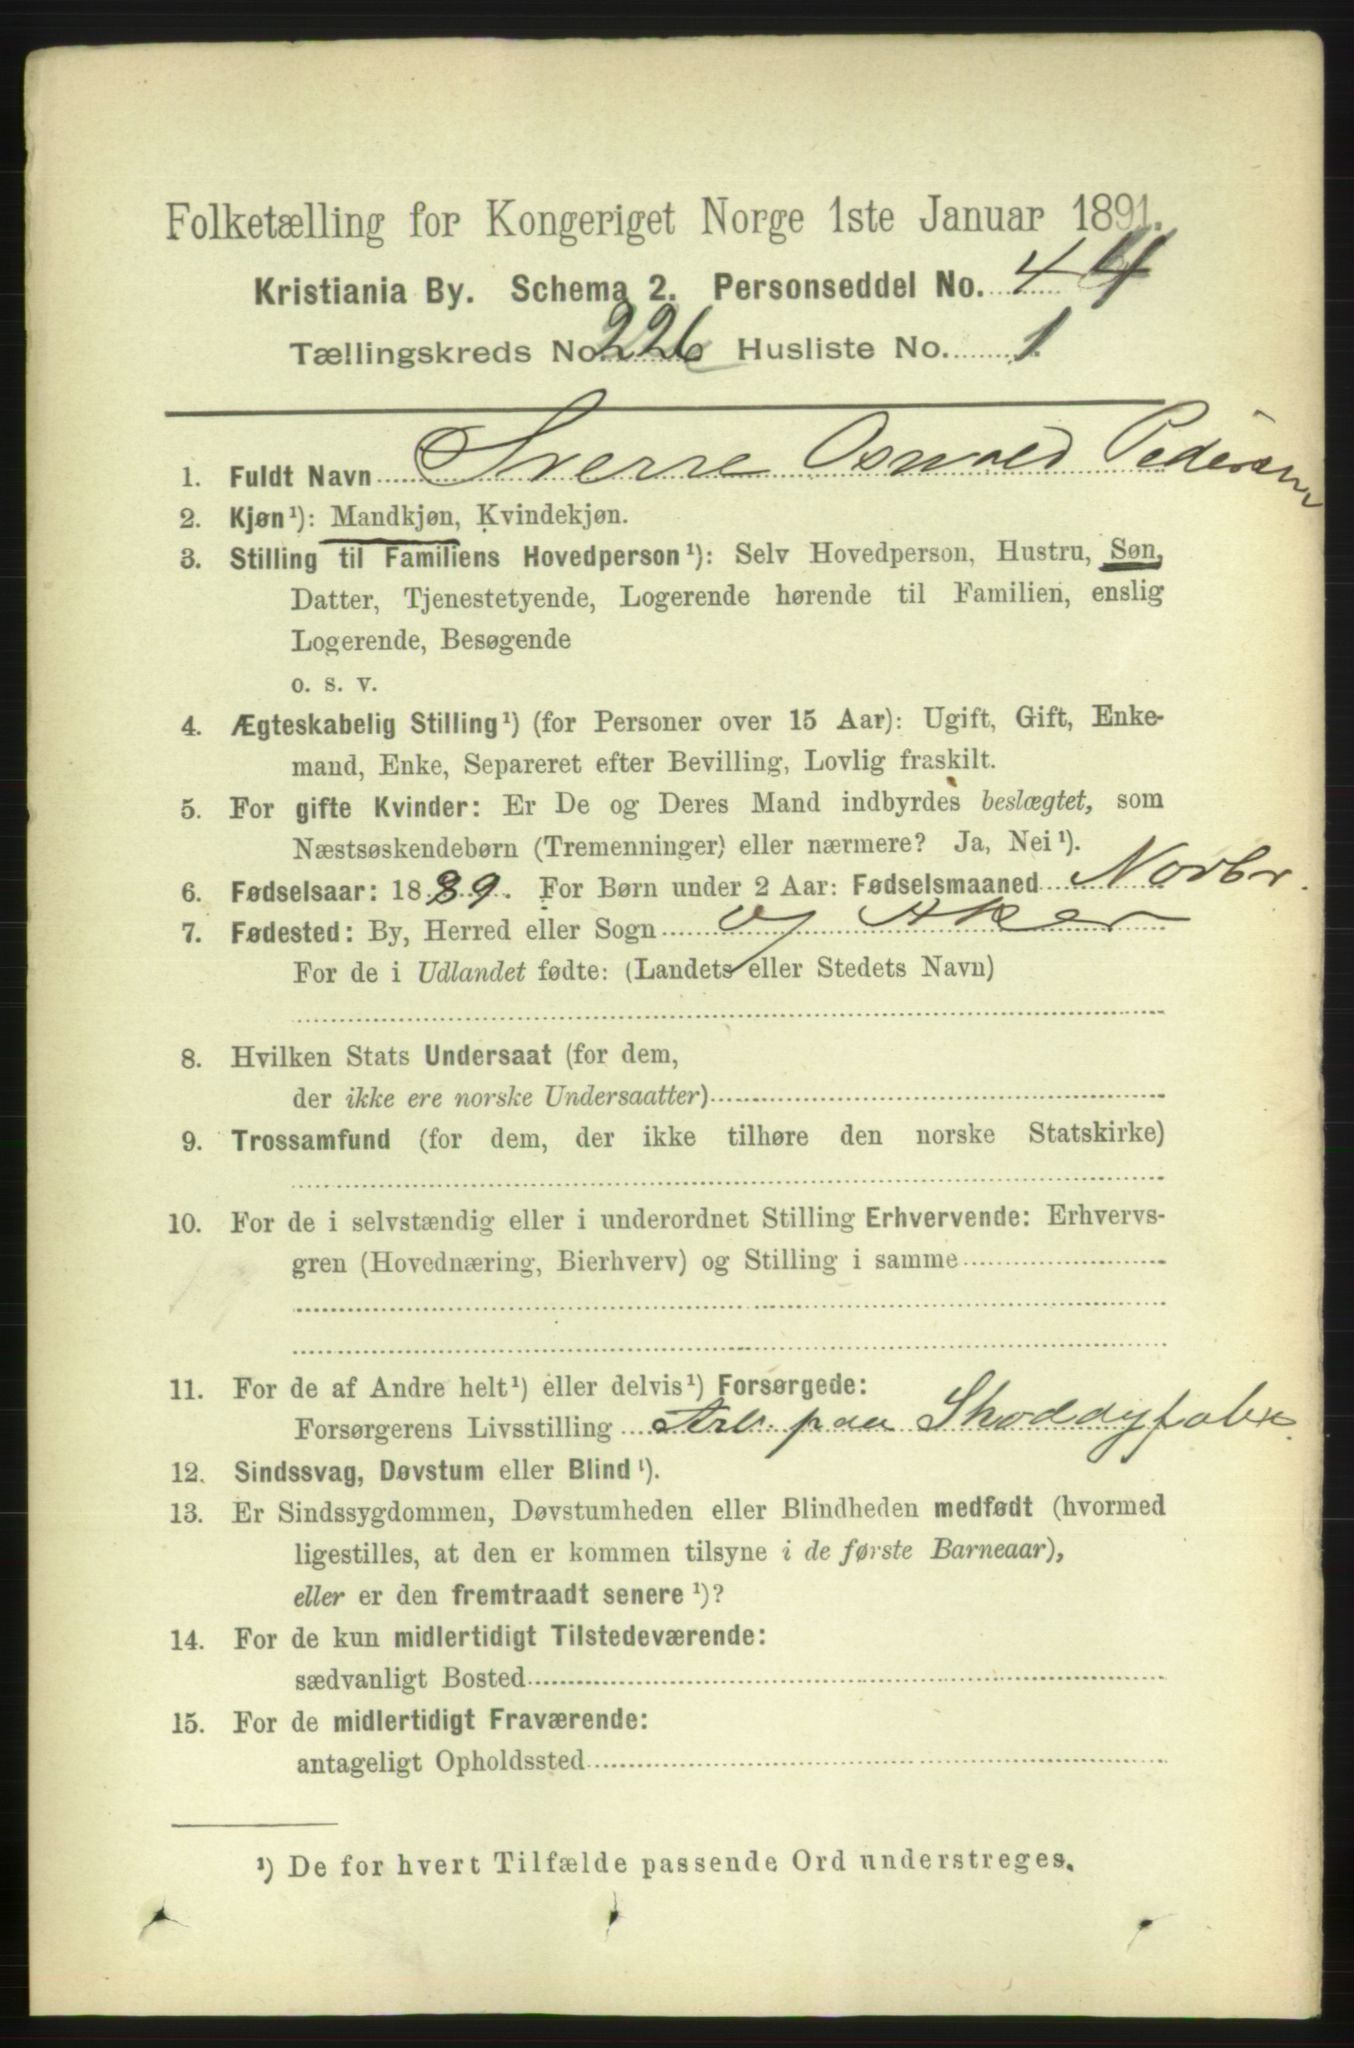 Folketælling for Kongeriget Norge 1ste Januar 1891.
Kristiania By. Schema 2. Personseddel No. 4 4
Tællingskreds No. 226 Husliste No. 1.
1. Fuldt Navn Sverre Osvald Pedersen
2. Kjøn¹): Mandkjøn, Kvindekjøn.
3. Stilling til Familiens Hovedperson¹): Selv Hovedperson, Hustru, Søn,
Datter, Tjenestetyende, Logerende hørende til Familien, enslig
Logerende, Besøgende
o. s. v.
4. Ægteskabelig Stilling¹) (for Personer over 15 Aar): Ugift, Gift, Enke-
mand, Enke, Separeret efter Bevilling, Lovlig fraskilt.
5. For gifte Kvinder: Er De og Deres Mand indbyrdes beslægtet, som
Næstsøskendebørn (Tremenninger) eller nærmere? Ja, Nei¹).
6. Fødselsaar: 1889. For Børn under 2 Aar: Fødselsmaaned Novbr.
7. Fødested: By, Herred eller Sogn Aker
For de i Udlandet fødte: (Landets eller Stedets Navn)
8. Hvilken Stats Undersaat (for dem,
der ikke ere norske Undersaatter)
9. Trossamfund (for dem, der ikke tilhøre den norske Statskirke)
10. For de i selvstændig eller i underordnet Stilling Erhvervende: Erhvervs-
gren (Hovednæring, Bierhverv) og Stilling i samme
11. For de af Andre helt¹) eller delvis¹) Forsørgede:
Forsørgerens Livsstilling Arb. paa Shoddyfabr.
12. Sindssvag, Døvstum eller Blind¹).
13. Er Sindssygdommen, Døvstumheden eller Blindheden medfødt (hvormed
ligestilles, at den er kommen tilsyne i de første Barneaar),
eller er den fremtraadt senere¹)?
14. For de kun midlertidigt Tilstedeværende:
sædvanligt Bosted
15. For de midlertidigt Fraværende:
antageligt Opholdssted
¹) De for hvert Tilfælde passende Ord understreges.